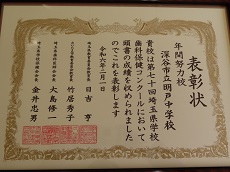 表彰状
年間努力校
深谷市立明戸中学校
貴校は第七十回埼玉県学校
歯科保健コンクールにおいて
頭書の成績を収められました
のでこれを表彰します
令和六年二月一日
日吉亨
竹居秀子
大島修一
金井忠男